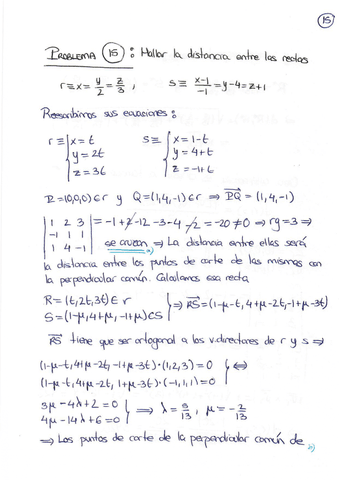 15
PROBLEMA 15 : Hallar la distancia entre las rectas
r≡x=y/2=z/3 , s≡ (x-1)/-1=y-4=z+1
Reescribimos sus ecuaciones :
r≡ { x=t s≡ { x=1-t
y=2t y=4+t
z=3t z=-1+t
P=(0,0,0)∈r y Q=(1,4,-1)∈r ⇒ PQ = (1,4,-1)
| 1 2 3 |
| -1 1 1 | = -1+2-12-3-4-2=-20≠0 ⇒ rg=3 ⇒
| 1 4 -1 |
se cruzan ⇒ La distancia entre ellas será
la distancia entre los puntos de corte de las mismas con
la perpendicular común. Calculamos esa recta
R=(t,2t,3t)∈r
S=(1-μ,4+μ,-1+μ)∈s } ⇒ RS=(1-μ-t,4+μ-2t,-1+μ-3t)
RS tiene que ser ortogonal a los v.directores de r y s ⇒
(1-μ-t,4+μ-2t,-1+μ-3t)·(1,2,3)=0
(1-μ-t,4+μ-2t,1+μ-3t)·(-1,1,1)=0 } ⇔
3μ-4λ+2=0
4μ-14λ+6=0 } ⇒ λ=5/13, μ=-2/13
⇒ Los puntos de corte de la perpendicular común de